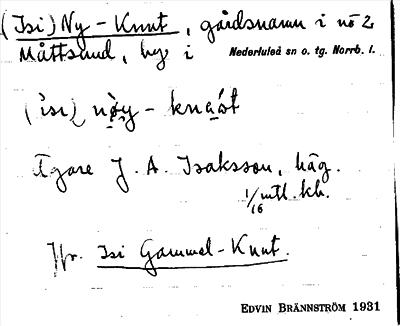 (Isi) Ny-Knut, gårdsnamn i nº 2
Måttsund, by i Nederluleå sn o. tg. Norrb. l.
(isi) nøy-knäst
Ägare J. A. Isaksson, häg.
1/16 mtl. kh.
Jfr. Isi Gammel-Knut.
EDVIN BRÄNNSTRÖM 1931